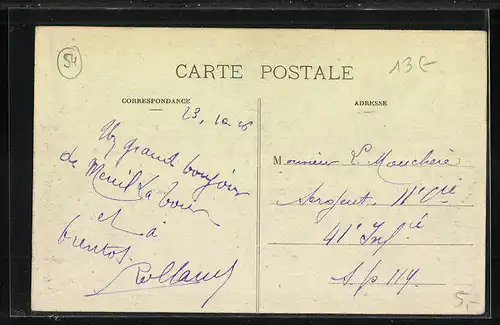 54
13€
CARTE POSTALE
CORRESPONDANCE
ADRESSE
23.10.16
Un grand bonjour
de Menil La
et à
bientot
Rolland
Monsieur L.
Sergent 11e Cie
41e Inf ie
S/p 114
5,-